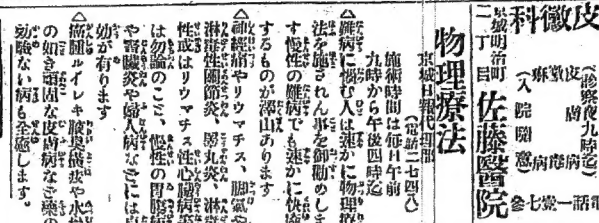 皮黴科
(診察夜九時迄)
皮膚病
(入院随意)
京城明治町二丁目
佐藤醫院
物理療法
京城日報代理部
(電話二七四八)
施術時間は毎日午前
九時から午後四時迄
△難病に悩む人は速かに物理療
法を施されん事を御勧めしま
す慢性の難病でも速かに快癒
するものが澤山あります
△神經痛やリウマチス、脚氣や
淋毒性関節炎、睾丸炎、淋毒
性或はリウマチス性心臓病等
は勿論のこと、慢性の胃腸病
や腎臓炎や婦人病などには卓
効が有ります
△癌腫ルイレキ腋臭禿疣や水虫
の如き頑固な皮膚病など藥の
効験ない病も全癒します。